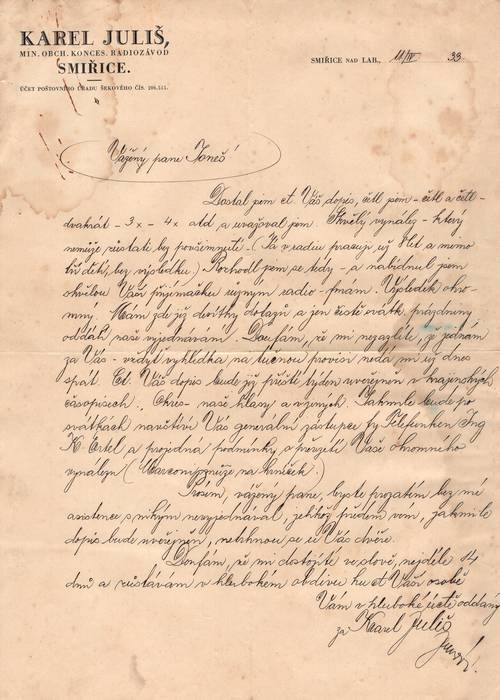 KAREL JULIŠ,
MIN. OBCH. KONCES. RADIOZÁVOD
SMIŘICE.
ÚČET POŠTOVNÍHO ÚŘADU ŠEKOVÉHO ČÍS. 206.511.
SMIŘICE NAD LAB., 11/IV 33
Vážený pane Joneš
Dostal jsem ct. Váš dopis, četl jsem - četl a četl -
dvakrát - 3x - 4x atd. a uvažoval jsem. Skvělý vynález - který
nemůže zůstati bez povšimnutí - (Já v radiu pracuji už 8 let a mimo
tří dětí, bez výsledku.) Rozhodl jsem se tedy - a nabídnul jsem
skvělou Vaši přijímačku různým radio-firmám. Výsledek ohro-
mný. Mám zde již desítky dotazů a jen čistě svátk. prázdniny
oddálí naše vyjednávání. Doufám, že mi nezazlíte, že jednám
za Vás - vždyť vyhlídka na tučnou provisi nedá mi už dnes
spát. Ct. Váš dopis bude již příští týden uveřejněn v krajinských
časopisech. Okres - naše hlasy a vzývých. Jakmile bude po
svátkách navštíví Vás generální zástupce fy Telefunken Ing
K. Ertel a projedná podmínky o převzetí Vaše ohromného
vynálezu (Marconi pomůže na krníček.)
Prosím, vážený pane, byste prozatím bez mé
asistence s nikým nevyjednával, jelikož předem vím, jakmile
dopis bude uveřejněn, netrhnou se u Vás dveře.
Doufám, že mi dostojíte v slově, nejdéle 14
dnů a zůstávám v hlubokém obdivu ku ct Vaší osobě
Vám v hluboké úctě oddaný
za Karel Juliš